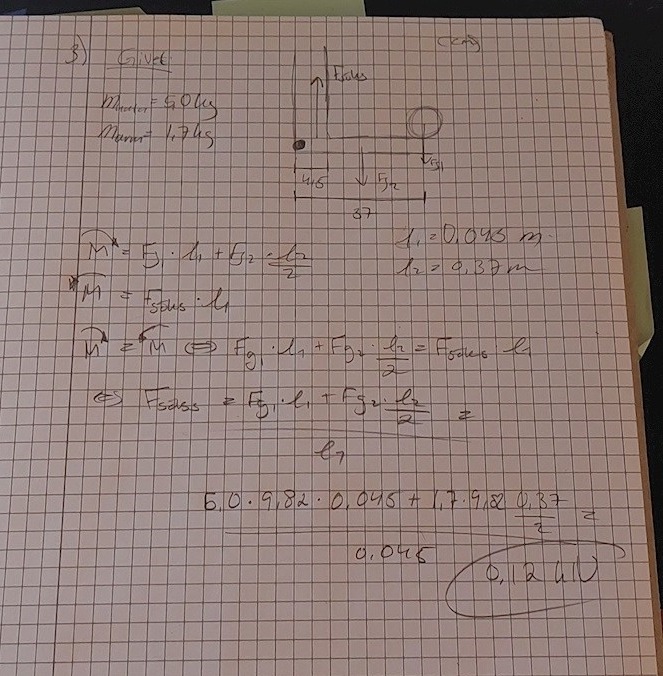 3) Givet
(cm)
m = 5,0 kg
m arm = 1,7 kg
Fsöks
Fg1
4,5
Fg2
37
l1 = 0,045 m
l2 = 0,37 m
M = Fg1 · l1 + Fg2 · l2/2
M = Fsöks · l1
M = M ⇔ Fg1 · l1 + Fg2 · l2/2 = Fsöks · l1
⇔ Fsöks = Fg1 · l1 + Fg2 · l2/2 =
l1
5,0 · 9,82 · 0,045 + 1,7 · 9,82 0,37/2 =
0,045
0,12 kN